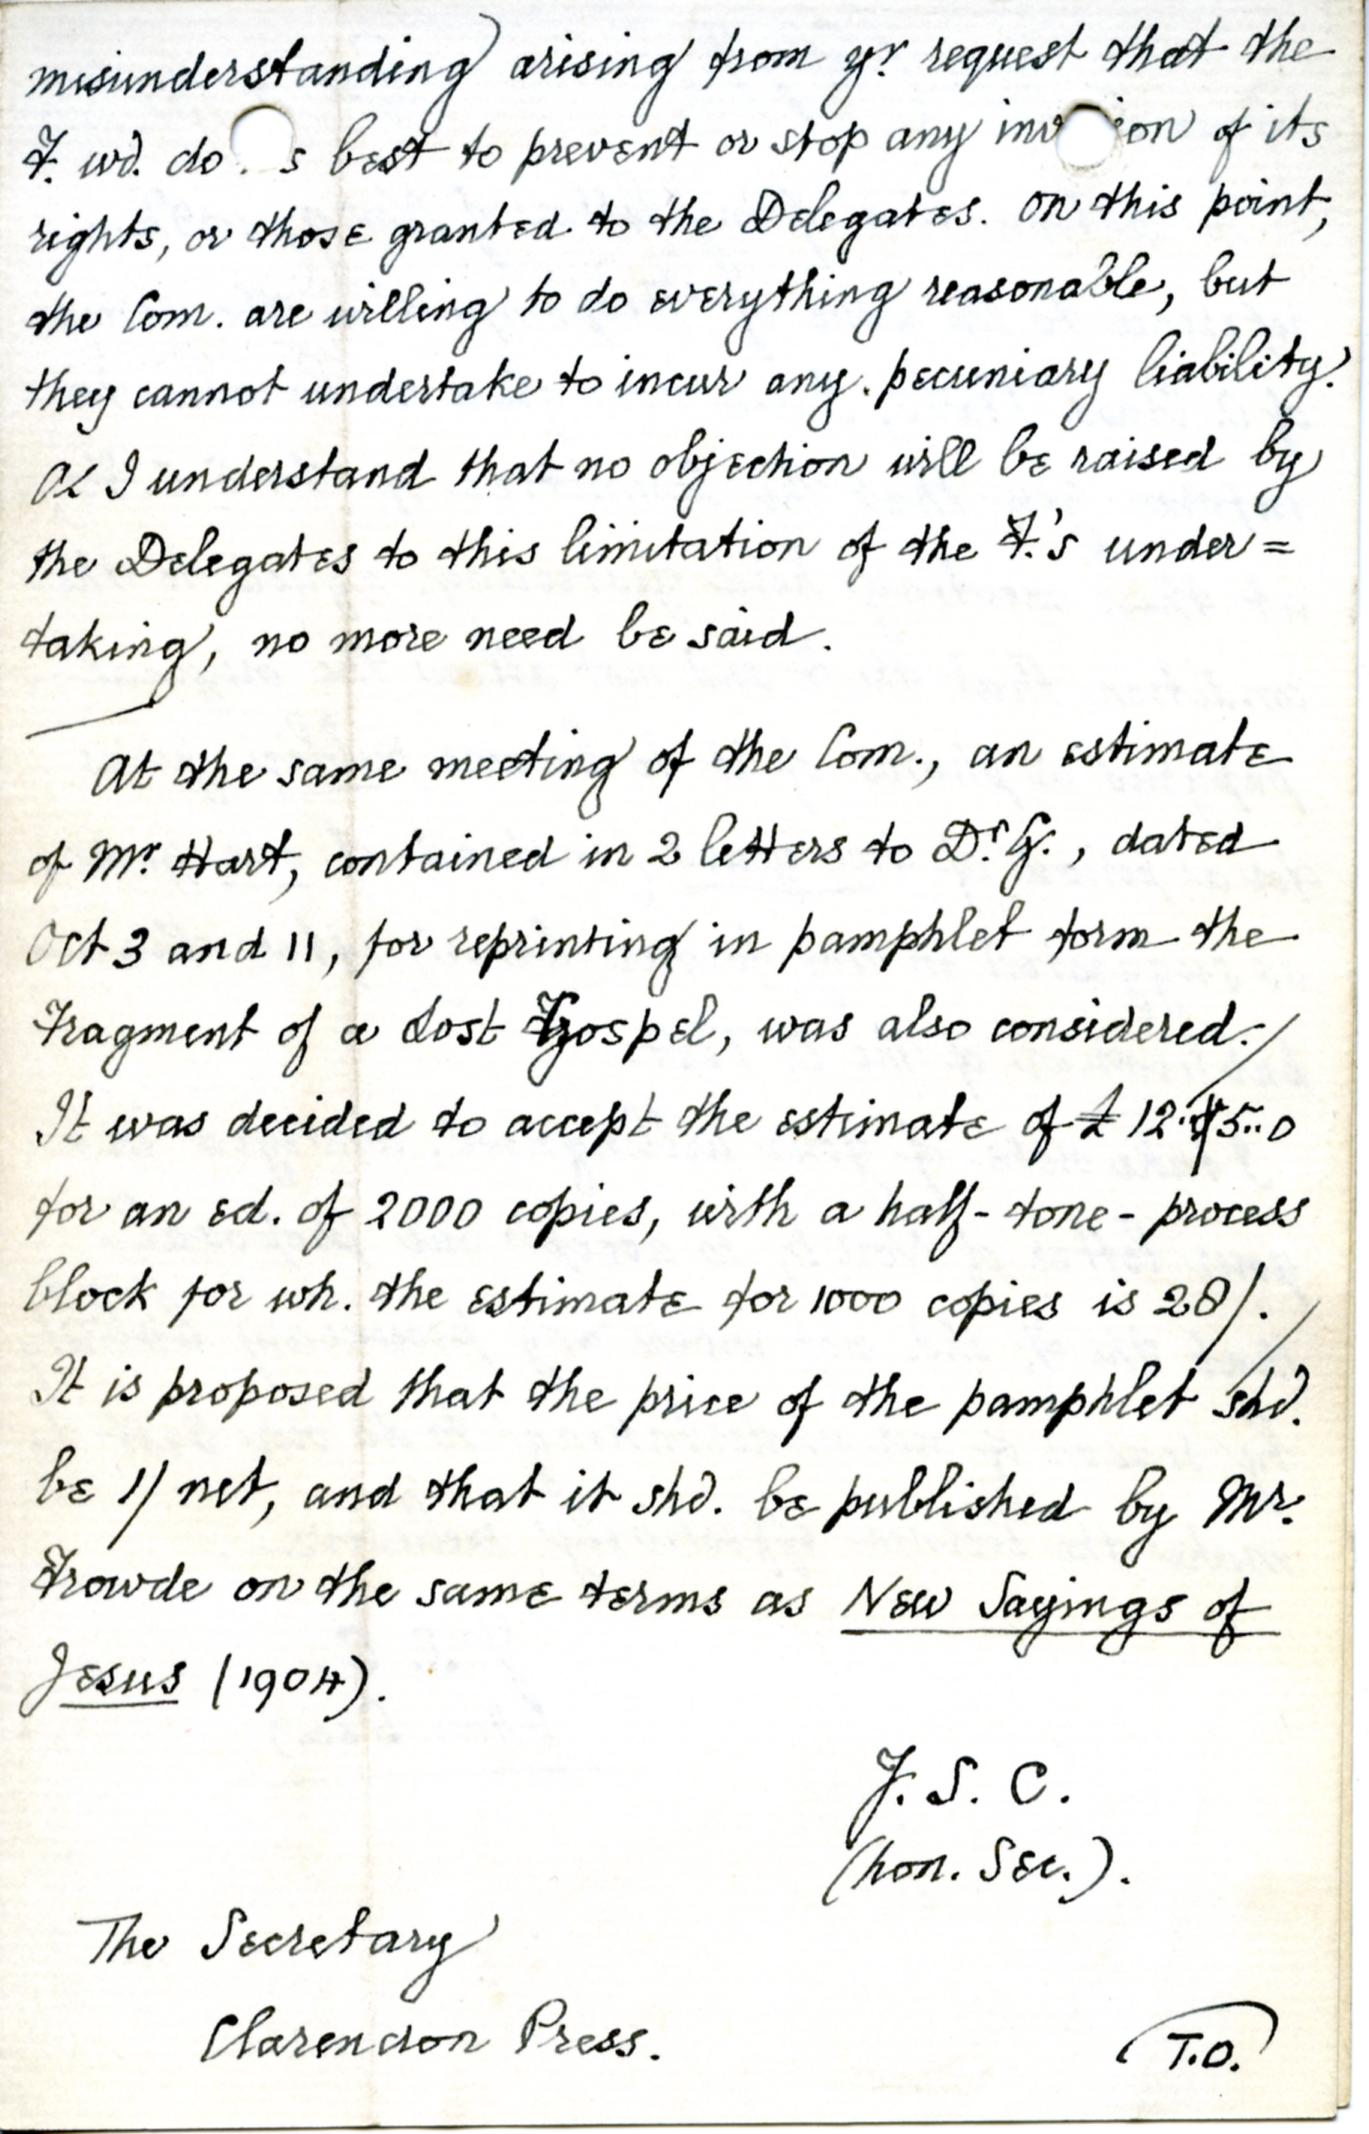 misunderstanding) arising from yr. request that the
F. wd. do s best to prevent or stop any inv ion of its
rights, or those granted to the Delegates. On this point,
the Com. are willing to do everything reasonable, but
they cannot undertake to incur any pecuniary liability.
As I understand that no objection will be raised by
the Delegates to this limitation of the F.'s under=
taking, no more need be said.
At the same meeting of the Com., an estimate
of Mr. Hart, contained in 2 letters to Dr. G., dated
Oct 3 and 11, for reprinting in pamphlet form the
Fragment of a Lost Gospel, was also considered.
It was decided to accept the estimate of £12.. 5..0
for an ed. of 2000 copies, with a half-tone-process
block for wh. the estimate for 1000 copies is 28/.
It is proposed that the price of the pamphlet shd.
be 1/ net, and that it shd. be published by Mr.
Frowde on the same terms as New Sayings of
Jesus (1904).
J. S. C.
(hon. Sec.).
The Secretary
Clarendon Press.
T.O.